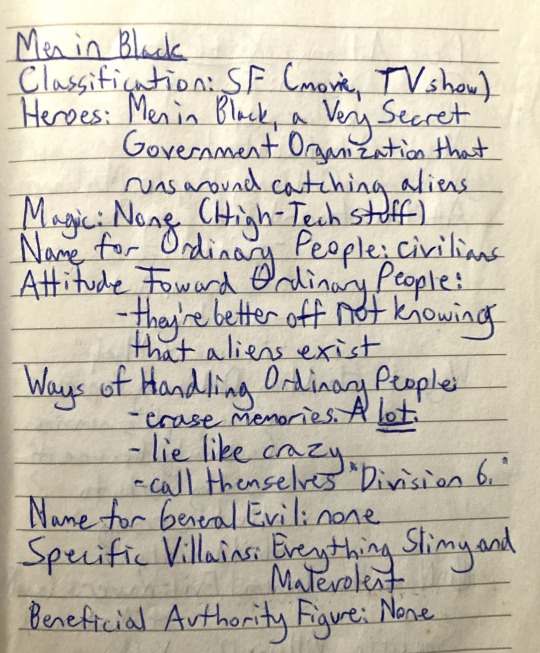 Men in Black
Classification: SF (movie, TV show)
Heroes: Men in Black, a Very Secret
Government Organization that
runs around catching aliens
Magic: None (High-Tech stuff)
Name for Ordinary People: civilians
Attitude Toward Ordinary People:
-they're better off not knowing
that aliens exist
Ways of Handling Ordinary People:
-erase memories. A lot.
-lie like crazy
-call themselves "Division 6."
Name for General Evil: none
Specific Villains: Everything Slimy and
Malevolent
Beneficial Authority Figure: None